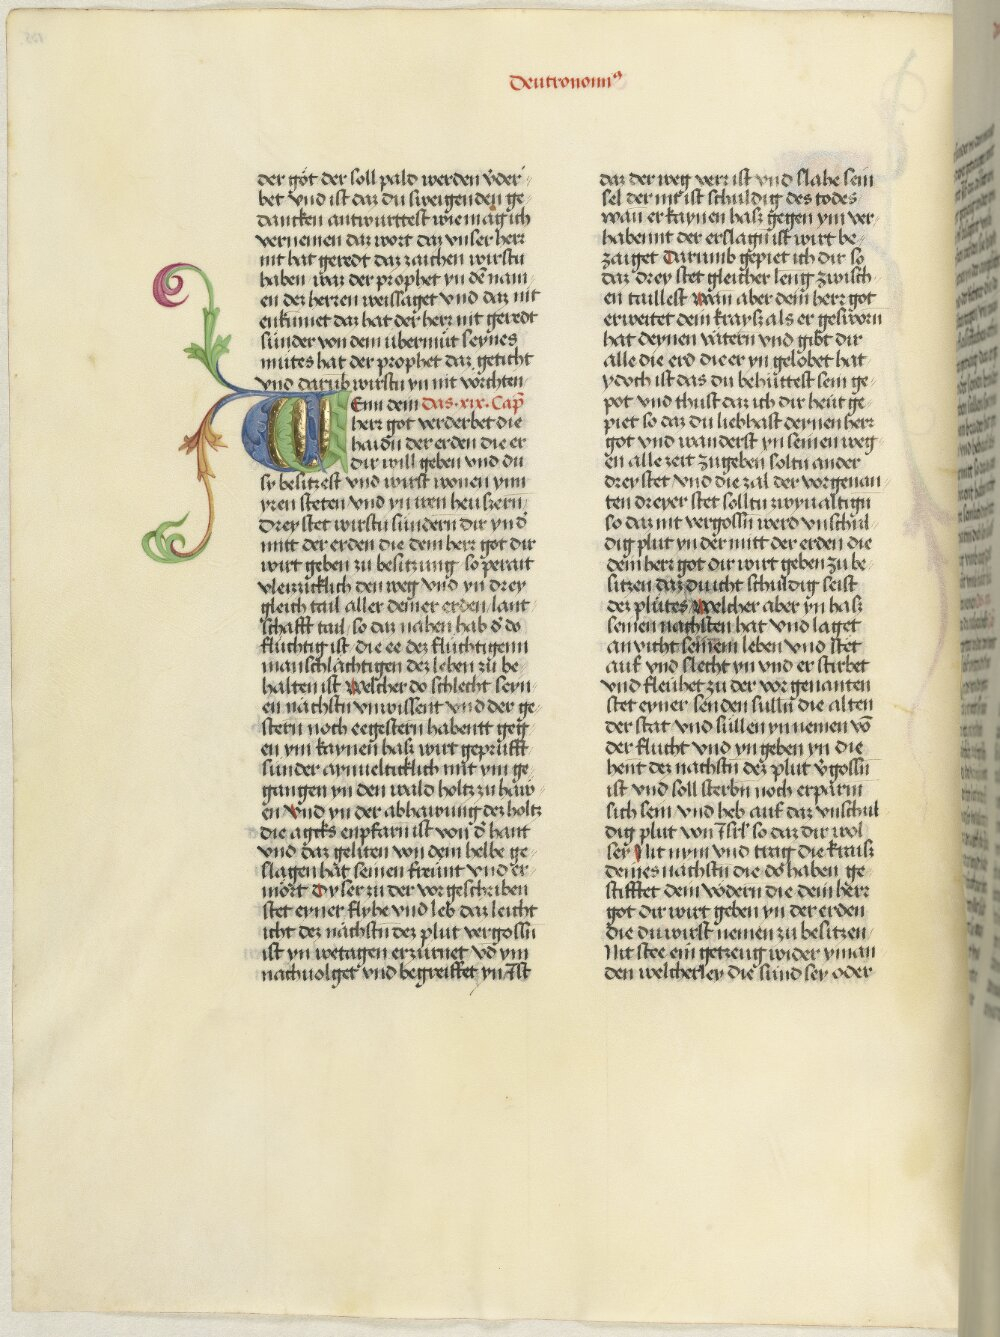 Deutronomiꝰ
der göt der soll pald werden v̈der-
bet vnd ist daz du sweigenden ge-
dancken antwurttest wie mag ich
vernemen daz wort daz vnser herr
nit hat geredt daz zaichen wirstu
haben waz der prophet yn dē nam-
en dez herren weissaget vnd daz nit
enkümet daz hat der herr nit geredt
sunder von dem übermüt seynes
mütes hat der prophet daz geticht
vnd darūb wirstu yn nit vörchten
WEnn dein das ·xix· Cap̄
herr got verderbet die
haidn̄ der erden die er
dir will geben vnd du
sy besitzest vnd wirst wonen ynn
yren steten vnd yn iren heüszern
Drey stet wirstu sündern dir yn d̄
mitt der erden die dein herr got dir
wirt geben zu besitzung so perait
vleizziklich den weg vnd yn drey
gleich tail aller deiner erden lant-
schafft tail so daz nahen hab d̄ do
flüchtig ist die ee dez flüchtigenn
manschlächtigen dez leben zü be-
halten ist Welcher do schlecht seyn-
en nächstn̄ vnwissent vnd der ge-
stern noch eegestern habentt geg-
en ym kaynen hasz wirt geprüfft
sunder aynueltiklich mit ym ge-
gangen yn den wald holtz zu haw-
en Vnd yn der abhawung dez holtz
die agcks enpfarn ist von d̄ hant
vnd daz geliten von dem helbe ge-
slagen hat seinen freünt vnd er-
mört Dyser zu der vorgeschriben
stet eyner flyhe vnd leb daz leicht
icht dez nächstn̄ dez plut vergossn̄
ist yn wetagen erzürnet vō ym
nachuolget vnd begreiffet yn Ist
daz der weg verr ist vnd slahe sein
sel der nit ist schuldig des todes
wan er kaynen hasz gegen ym ver-
habennt der erslagn̄ ist wirt be-
zaiget Darumb gepiet ich dir so
daz drey stet gleicher leng zwisch-
en taillest Wan aber dein herr got
erweitet dein krays als er gesworn
hat deynen vätern vnd gibt dir
alle die erd die er yn gelobet hat
ydoch ist das du behüttest sein ge-
pot vnd thust daz ich dir heüt ge-
piet so daz du liebhast deynen herr
got vnd wanderst yn seinen weg-
en alle zeit zugeben soltu ander
drey stet vnd die zal der vorgenan-
ten dreyer stet solltu zwyualtign̄
so daz nit vergossn̄ werd vnschul-
dig plut yn der mitt der erden die
dein herr got dir wirt geben zu be-
sitzen daz du icht schuldig seist
dez plütes Welcher aber yn hasz
seinen nächsten hat vnd laget
anvicht seinem leben vnd stet
auf vnd slecht yn vnd er stirbet
vnd fleühet zu der vorgenanten
stet eyner senden sulln̄ die alten
der stat vnd süllen yn nemen vō
der flucht vnd yn geben yn die
hent dez nächstn̄ dez plut v̄gossn̄
ist vnd soll sterbn̄ noch erparm
sich sein vnd heb auf daz vnschul-
dig plut von Isrl̄ so daz dir wol
sey Nit nym vnd trag die kraisz
deines nächstn̄ die do haben ge-
stifftet dein vödern die dein herr
got dir wirt geben yn der erden
die du wirst nemen zu besitzen
Nit stee ein getzeug wider yman-
den welcherley die sünd sey oder